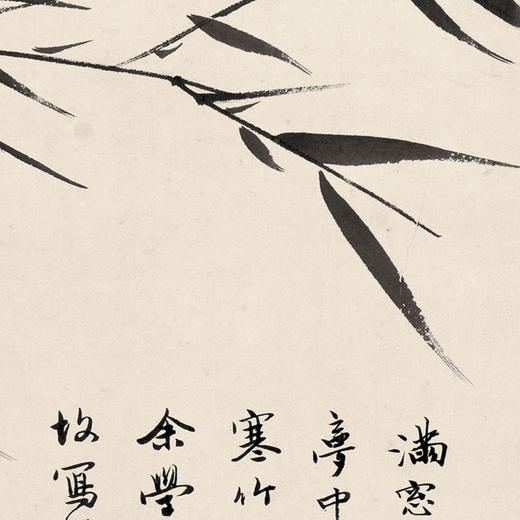 滿窓
夢中
寒竹
余學
故寫